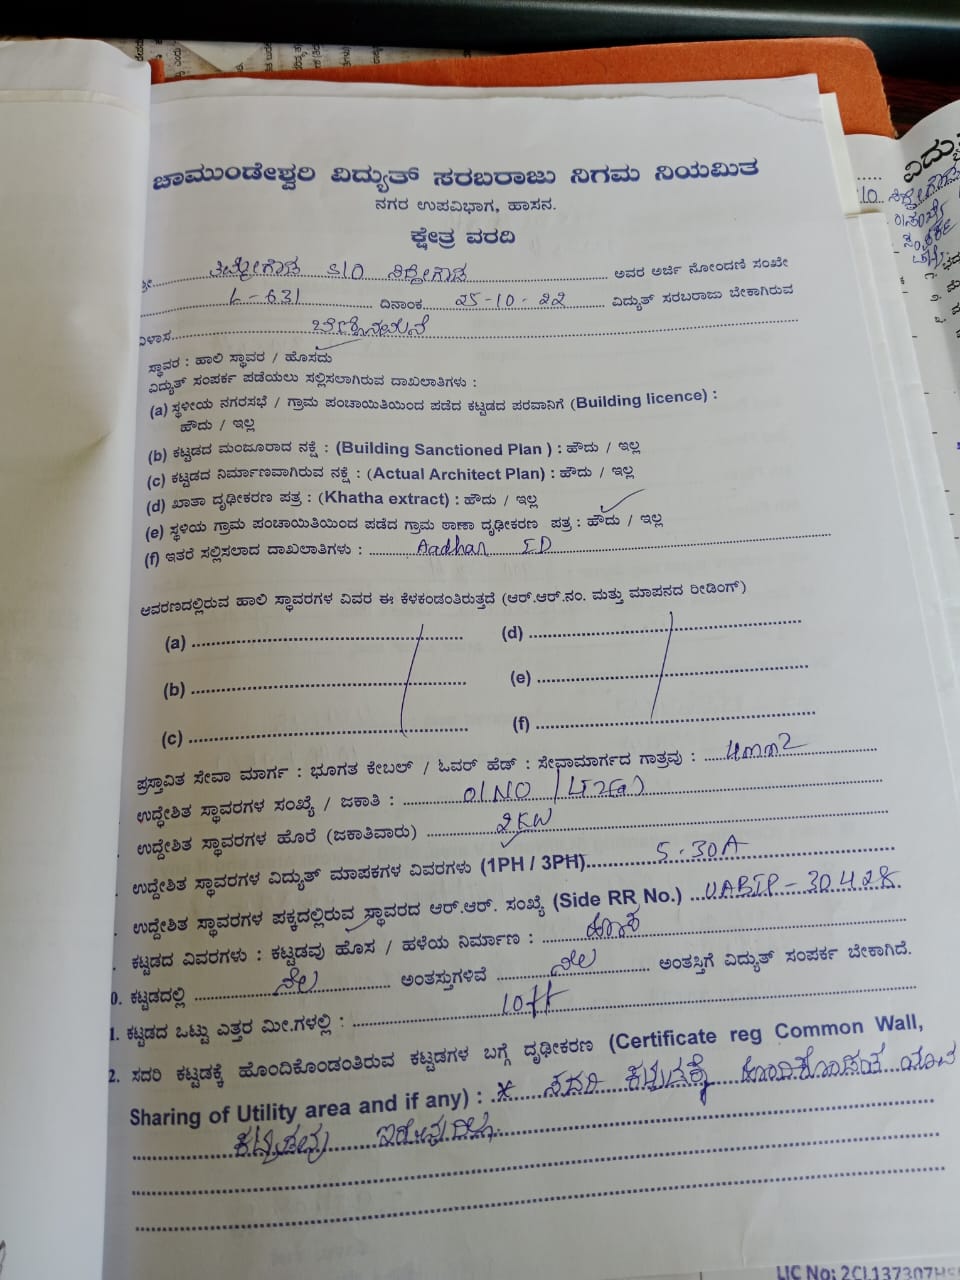 ಚಾಮುಂಡೇಶ್ವರಿ ವಿದ್ಯುತ್ ಸರಬರಾಜು ನಿಗಮ ನಿಯಮಿತ
ನಗರ ಉಪವಿಭಾಗ, ಹಾಸನ.
ಕ್ಷೇತ್ರ ವರದಿ
S/O ಅವರ ಅರ್ಜಿ ನೋಂದಣಿ ಸಂಖೇ
L-631 ದಿನಾಂಕ 25-10-22 ವಿದ್ಯುತ್ ಸರಬರಾಜು ಬೇಕಾಗಿರುವ
ಸ್ಥಾವರ : ಹಾಲಿ ಸ್ಥಾವರ / ಹೊಸದು
ವಿದ್ಯುತ್ ಸಂಪರ್ಕ ಪಡೆಯಲು ಸಲ್ಲಿಸಲಾಗಿರುವ ದಾಖಲಾತಿಗಳು :
(a) ಸ್ಥಳೀಯ ನಗರಸಭೆ / ಗ್ರಾಮ ಪಂಚಾಯಿತಿಯಿಂದ ಪಡೆದ ಕಟ್ಟಡದ ಪರವಾನಿಗೆ (Building licence) :
ಹೌದು / ಇಲ್ಲ
(b) ಕಟ್ಟಡದ ಮಂಜೂರಾದ ನಕ್ಷೆ : (Building Sanctioned Plan ) : ಹೌದು / ಇಲ್ಲ
(c) ಕಟ್ಟಡದ ನಿರ್ಮಾಣವಾಗಿರುವ ನಕ್ಷೆ : (Actual Architect Plan) : ಹೌದು / ಇಲ್ಲ
(d) ಖಾತಾ ದೃಢೀಕರಣ ಪತ್ರ : (Khatha extract) : ಹೌದು / ಇಲ್ಲ
(e) ಸ್ಥಳಿಯ ಗ್ರಾಮ ಪಂಚಾಯಿತಿಯಿಂದ ಪಡೆದ ಗ್ರಾಮ ಠಾಣಾ ದೃಢೀಕರಣ ಪತ್ರ : ಹೌದು / ಇಲ್ಲ
(f) ಇತರೆ ಸಲ್ಲಿಸಲಾದ ದಾಖಲಾತಿಗಳು : Aadhar ID
ಆವರಣದಲ್ಲಿರುವ ಹಾಲಿ ಸ್ಥಾವರಗಳ ವಿವರ ಈ ಕೆಳಕಂಡಂತಿರುತ್ತದೆ (ಆರ್.ಆರ್.ನಂ. ಮತ್ತು ಮಾಪನದ ರೀಡಿಂಗ್)
(a) (d)
(b) (e)
(c) (f)
ಪ್ರಸ್ತಾವಿತ ಸೇವಾ ಮಾರ್ಗ : ಭೂಗತ ಕೇಬಲ್ / ಓವರ್ ಹೆಡ್ : ಸೇವಾಮಾರ್ಗದ ಗಾತ್ರವು : 4mm2
ಉದ್ದೇಶಿತ ಸ್ಥಾವರಗಳ ಸಂಖ್ಯೆ / ಜಕಾತಿ : 01NO / LT2(a)
ಉದ್ದೇಶಿತ ಸ್ಥಾವರಗಳ ಹೊರೆ (ಜಕಾತಿವಾರು) 2KW
ಉದ್ದೇಶಿತ ಸ್ಥಾವರಗಳ ವಿದ್ಯುತ್ ಮಾಪಕಗಳ ವಿವರಗಳು (1PH / 3PH) 5-30A
ಉದ್ದೇಶಿತ ಸ್ಥಾವರಗಳ ಪಕ್ಕದಲ್ಲಿರುವ ಸ್ಥಾವರದ ಆರ್.ಆರ್. ಸಂಖ್ಯೆ (Side RR No.) UABIP-30428
ಕಟ್ಟಡದ ವಿವರಗಳು : ಕಟ್ಟಡವು ಹೊಸ / ಹಳೆಯ ನಿರ್ಮಾಣ :
0. ಕಟ್ಟಡದಲ್ಲಿ ನೆಲ ಅಂತಸ್ತುಗಳಿವೆ ನೆಲ ಅಂತಸ್ತಿಗೆ ವಿದ್ಯುತ್ ಸಂಪರ್ಕ ಬೇಕಾಗಿದೆ.
1. ಕಟ್ಟಡದ ಒಟ್ಟು ಎತ್ತರ ಮೀ.ಗಳಲ್ಲಿ : 10ft
2. ಸದರಿ ಕಟ್ಟಡಕ್ಕೆ ಹೊಂದಿಕೊಂಡಂತಿರುವ ಕಟ್ಟಡಗಳ ಬಗ್ಗೆ ದೃಢೀಕರಣ (Certificate reg Common Wall,
Sharing of Utility area and if any) : * ಸದರಿ ಕಟ್ಟಡಕ್ಕೆ ಹೊಂದಿಕೊಂಡಂತೆ ಯಾವ
ಕಟ್ಟಡವು ಇರುವುದಿಲ್ಲ.
LIC No: 2CL137307HSN